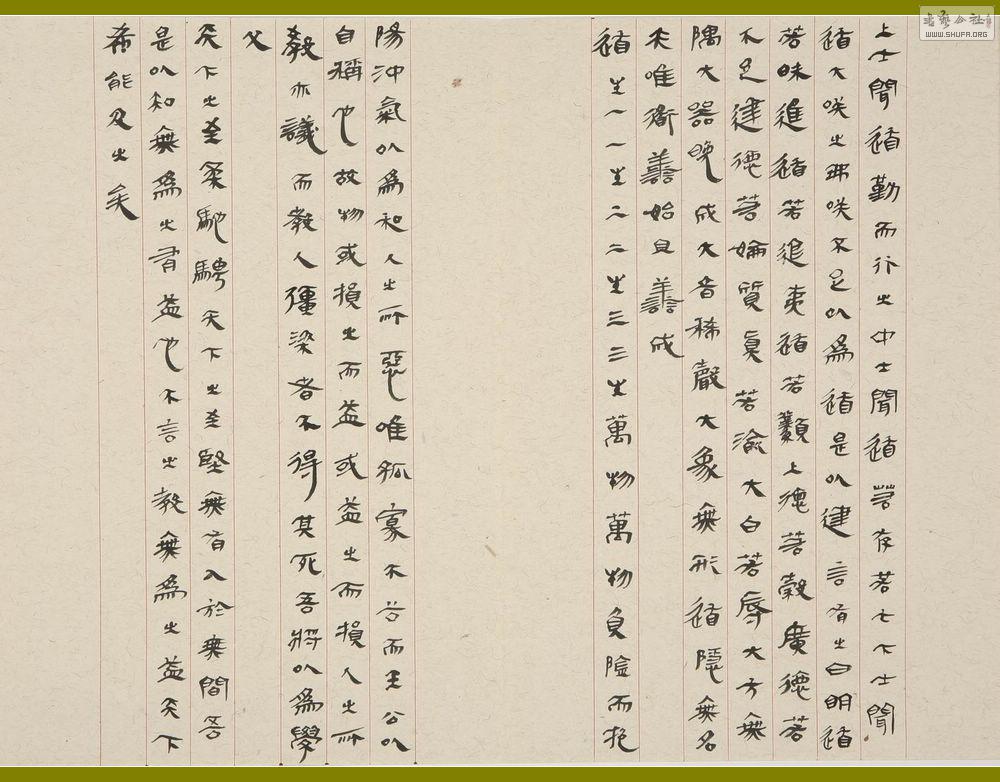 上士聞道勤而行之中士聞道若存若亡下士聞
道大咲之弗咲不足以為道是以建言有之曰明道
若昧進道若退夷道若纇上德若穀廣德若
不足建德若媮質真若渝大白若辱大方無
隅大器晚成大音稀聲大象無形道隱無名
夫唯衜善始且善成
道生一一生二二生三三生萬物萬物負陰而抱
陽沖氣以為和人之所惡唯孤寡不谷而王公以
自稱也故物或損之而益或益之而損人之所
教亦議而教人彊梁者不得其死吾將以為學
父
天下之至柔馳騁天下之至堅無有入於無間吾
是以知無為之有益也不言之教無為之益天下
希能及之矣
书艺公社
WWW.SHUFA.ORG